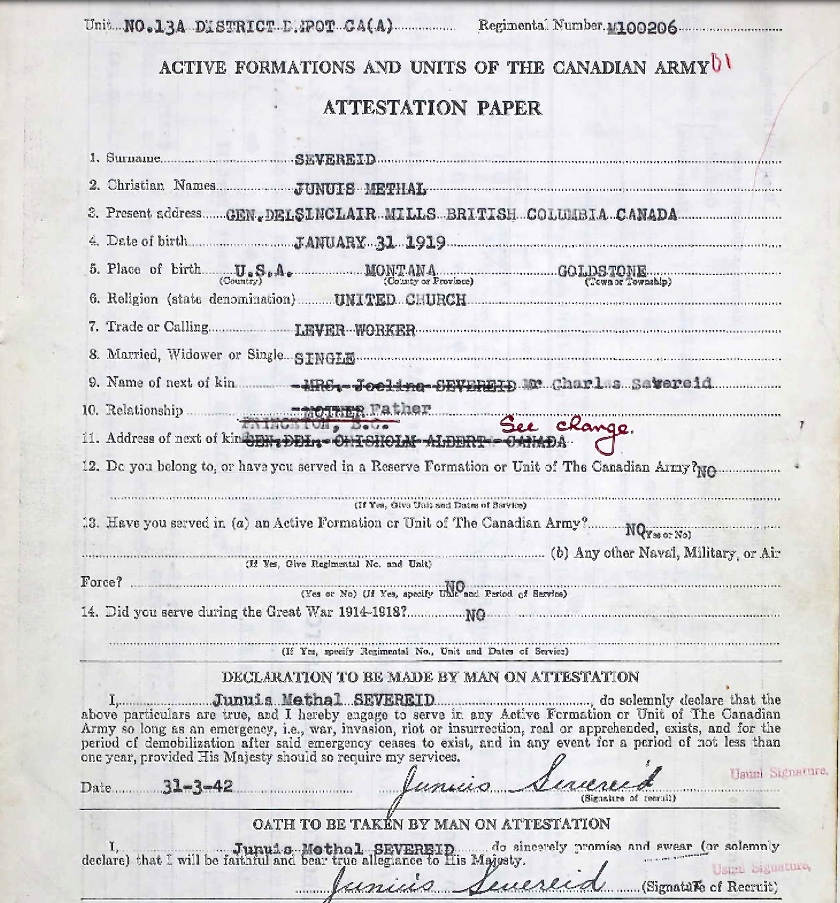 Unit NO.13A DISTRICT D.POT CA(A) Regimental Number M100206
ACTIVE FORMATIONS AND UNITS OF THE CANADIAN ARMY
ATTESTATION PAPER
1. Surname SEVEREID
2. Christian Names JUNUIS METHAL
3. Present address GEN.DEL SINCLAIR MILLS BRITISH COLUMBIA CANADA
4. Date of birth JANUARY 31 1919
5. Place of birth U.S.A. MONTANA GOLDSTONE
(Country) (County or Province) (Town or Township)
6. Religion (state denomination) UNITED CHURCH
7. Trade or Calling LEVER WORKER
8. Married, Widower or Single SINGLE
9. Name of next of kin MRS. Joelina SEVEREID Mr Charles Severeid
10. Relationship MOTHER Father
PRINCETON, B.C. See change.
11. Address of next of kin GEN.DEL. CHISHOLM ALBERT CANADA
12. Do you belong to, or have you served in a Reserve Formation or Unit of The Canadian Army? NO
(If Yes, Give Unit and Dates of Service)
13. Have you served in (a) an Active Formation or Unit of The Canadian Army? NO (Yes or No)
(b) Any other Naval, Military, or Air
(If Yes, Give Regimental No. and Unit)
Force? NO
(Yes or No) (If Yes, specify Unit and Period of Service)
14. Did you serve during the Great War 1914-1918? NO
(If Yes, specify Regimental No., Unit and Dates of Service)
DECLARATION TO BE MADE BY MAN ON ATTESTATION
I, Junuis Methal SEVEREID, do solemnly declare that the
above particulars are true, and I hereby engage to serve in any Active Formation or Unit of The Canadian
Army so long as an emergency, i.e., war, invasion, riot or insurrection, real or apprehended, exists, and for the
period of demobilization after said emergency ceases to exist, and in any event for a period of not less than
one year, provided His Majesty should so require my services.
Usual Signature,
Date 31-3-42 Junius Severeid
(Signature of recruit)
OATH TO BE TAKEN BY MAN ON ATTESTATION
I, Junuis Methal SEVEREID do sincerely promise and swear (or solemnly
declare) that I will be faithful and bear true allegiance to His Majesty.
Usual Signature,
Junius Severeid (Signature of Recruit)